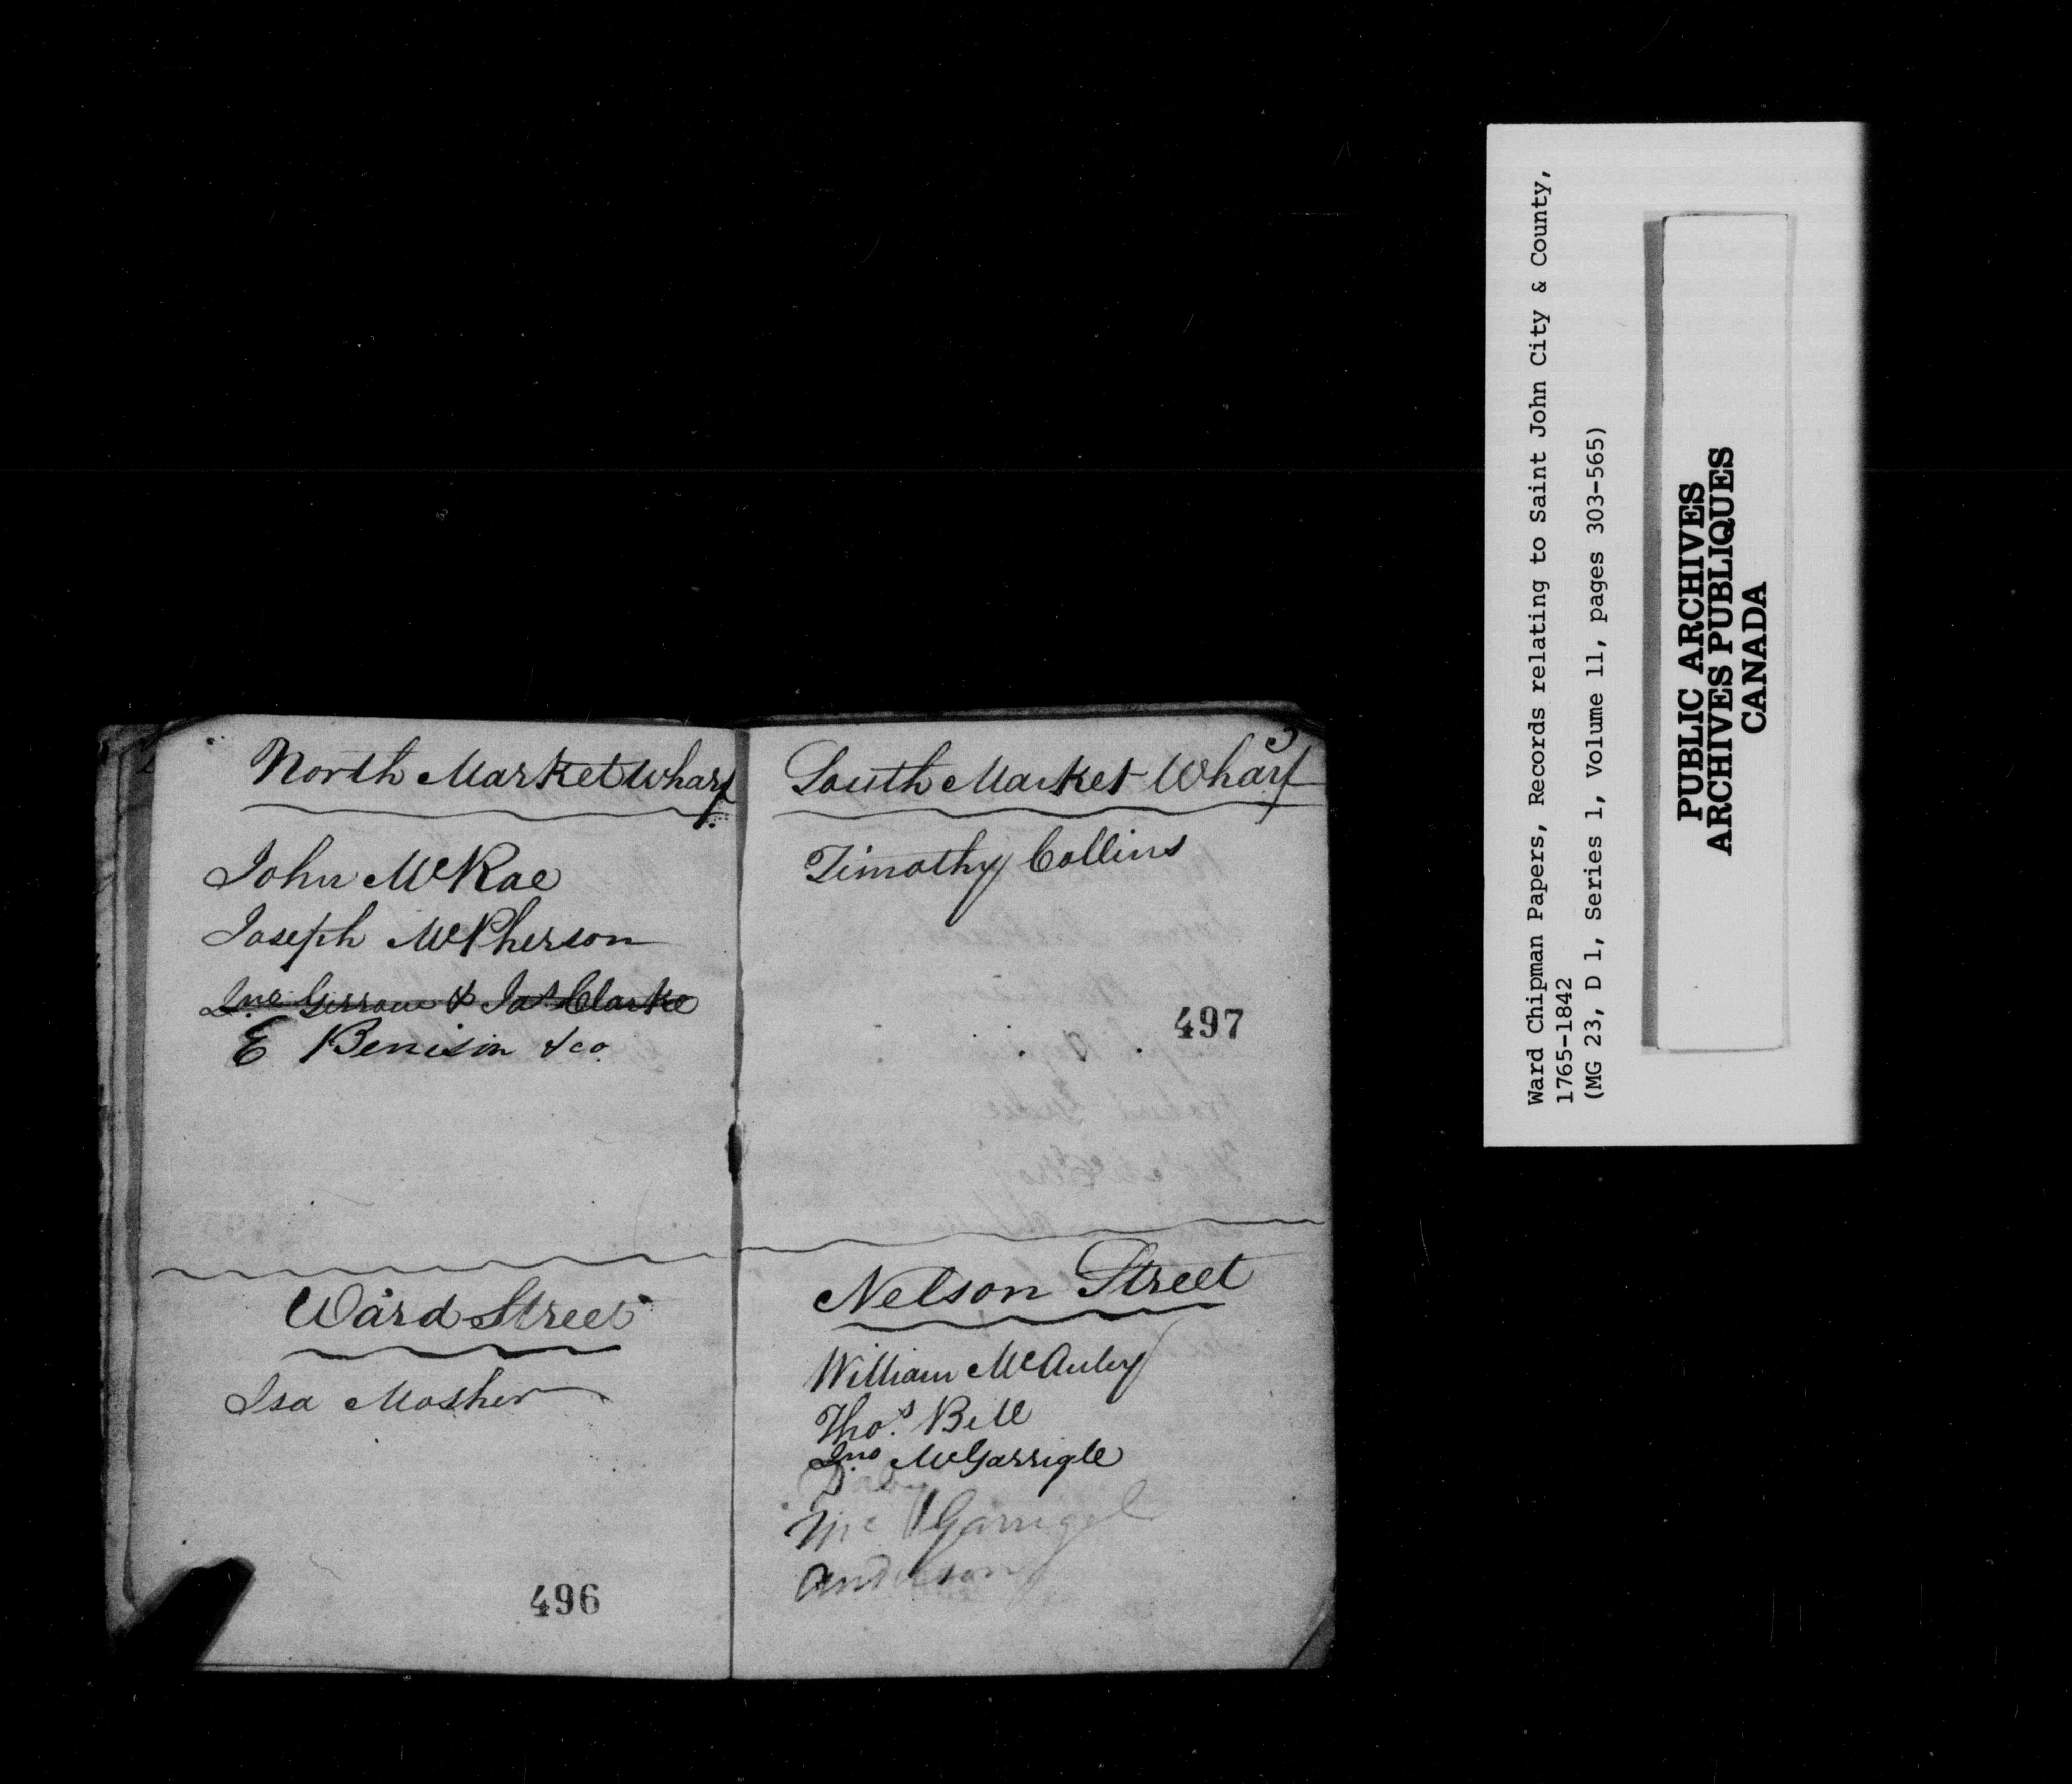 North Market Wharf
John McRae
Joseph McPherson
Jno Gerrow & Jas Clarke
E Benison & co.
Ward Street
Isa Mosher
496
3
South Market Wharf
Timothy Collins
497
Nelson Street
William McAuley
Thos. Bell
Jno McGarrigle
Mc Garrigel
Anderson
Ward Chipman Papers, Records relating to Saint John City & County,
1765-1842
(MG 23, D 1, Series 1, Volume 11, pages 303-565)
PUBLIC ARCHIVES
ARCHIVES PUBLIQUES
CANADA